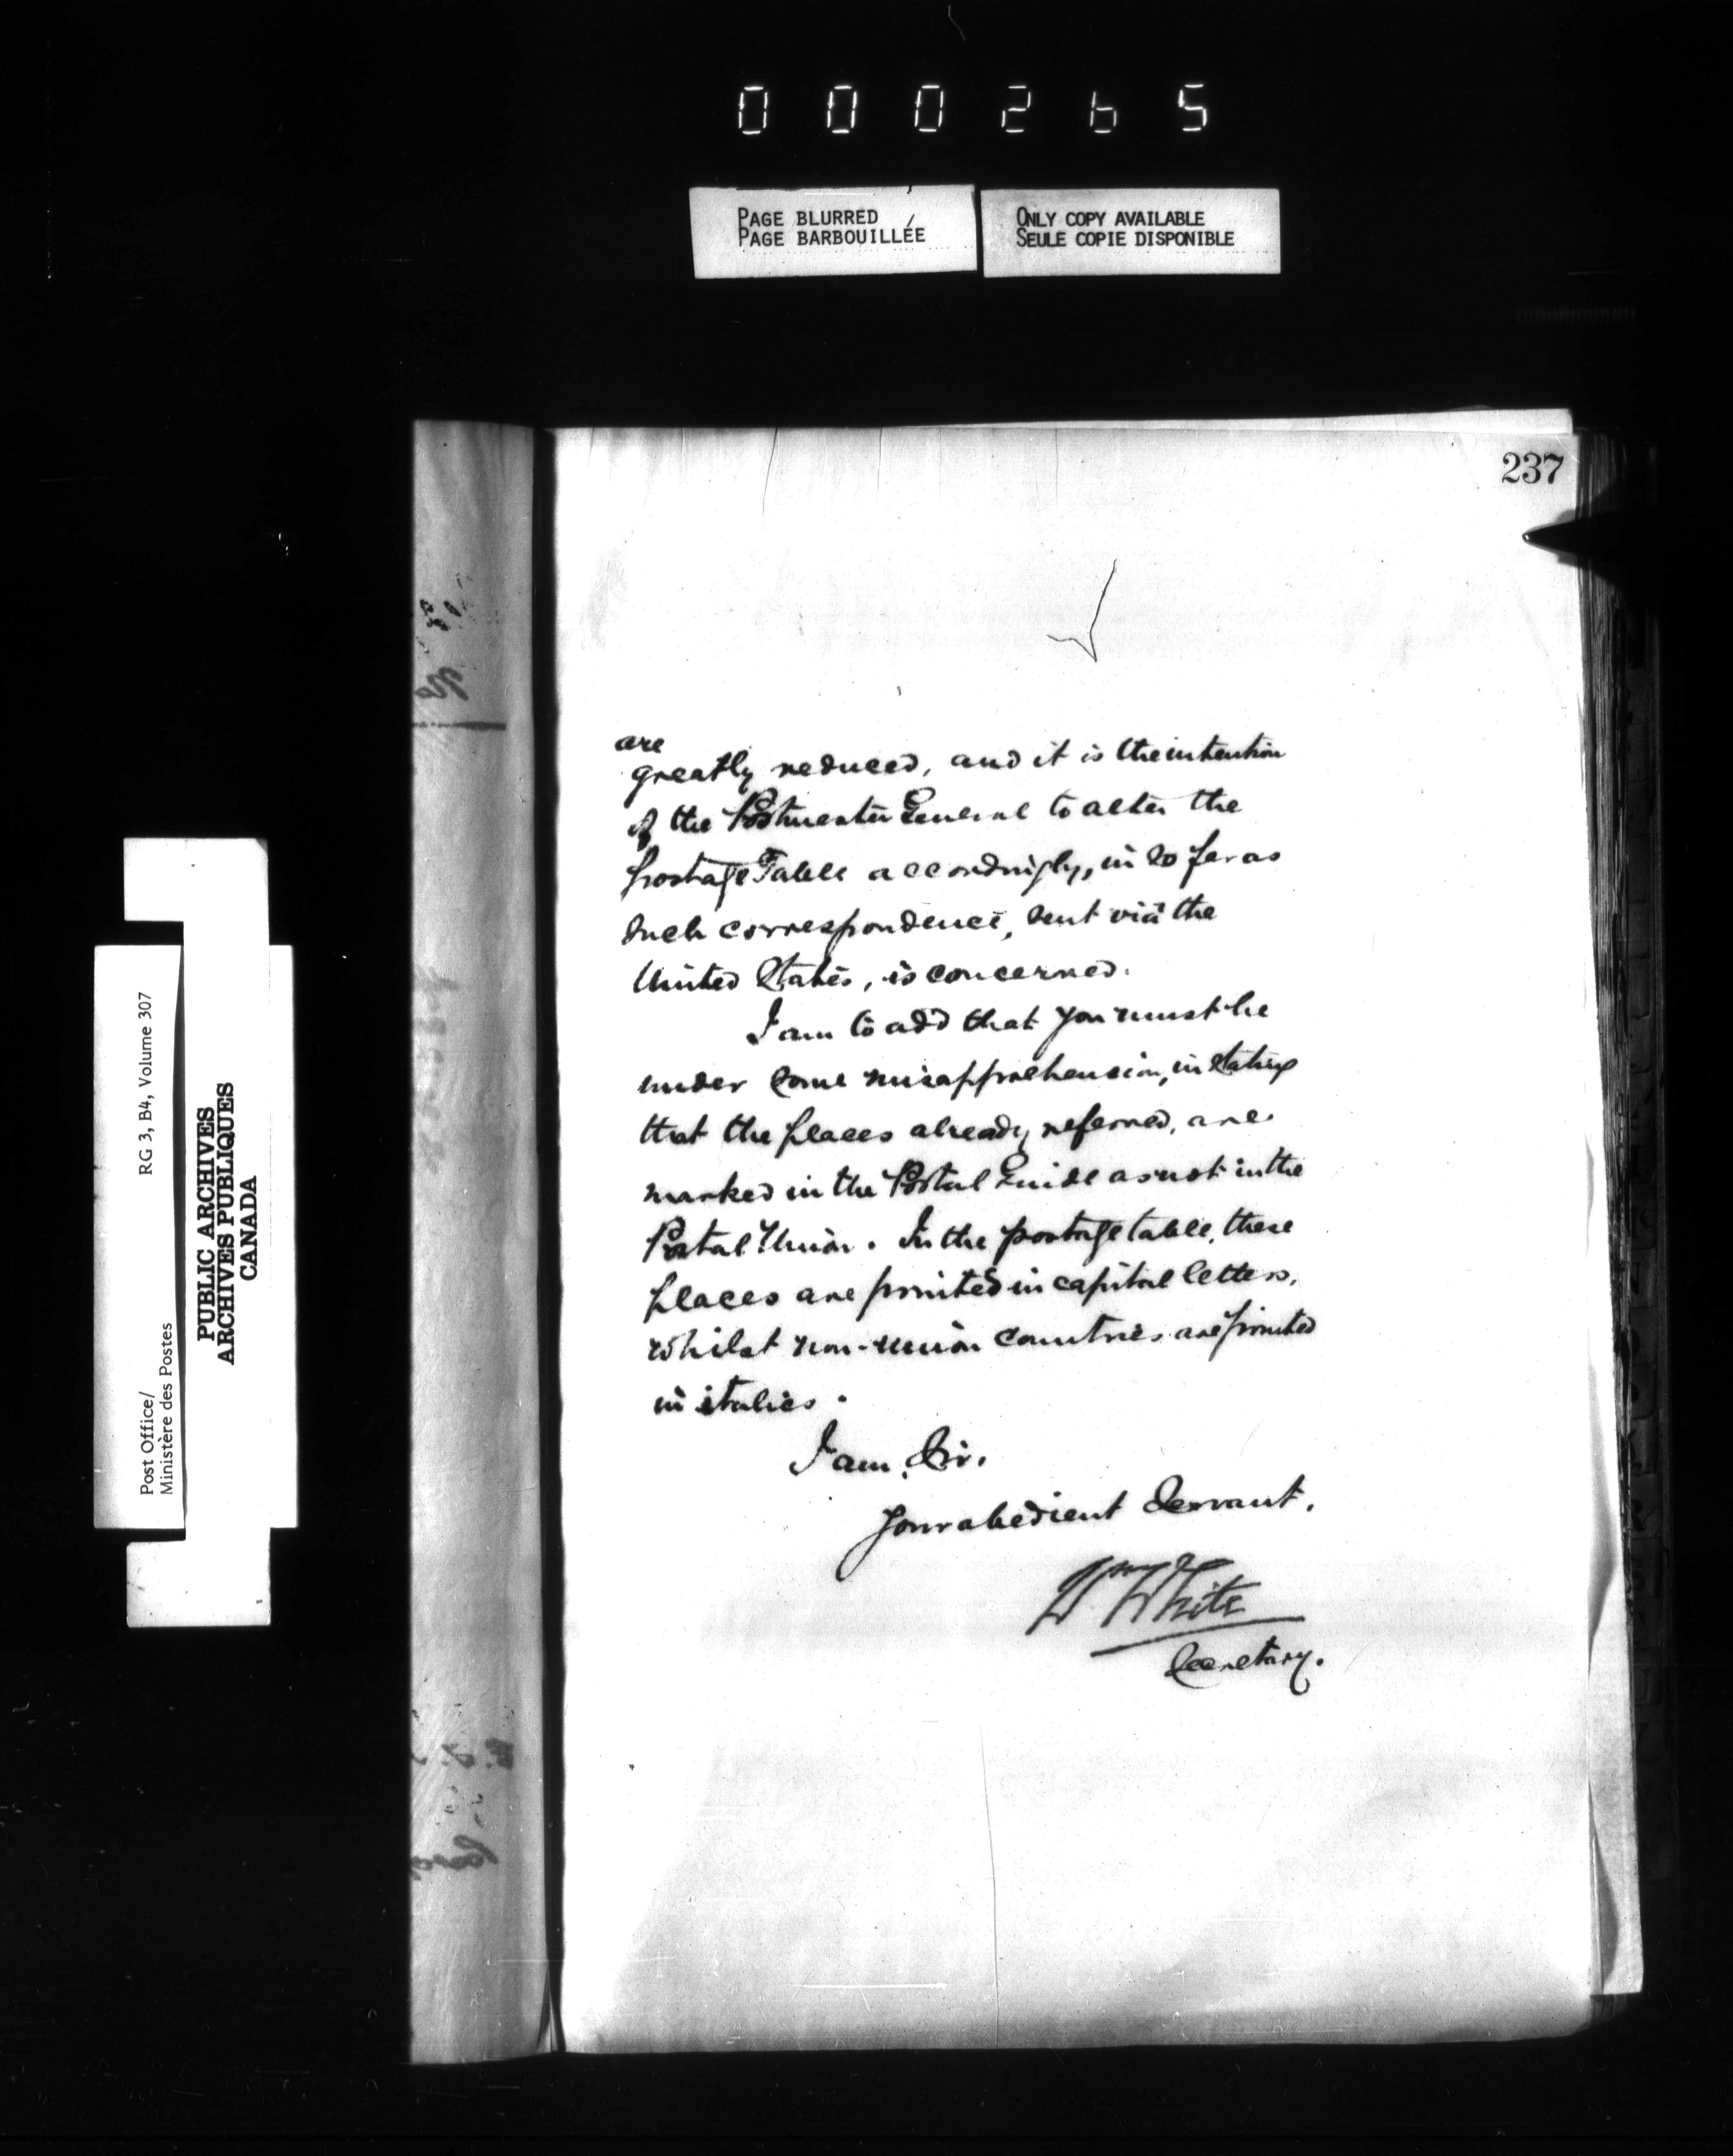 000265
PAGE BLURRED
PAGE BARBOUILLÉE
ONLY COPY AVAILABLE
SEULE COPIE DISPONIBLE
237
are
greatly reduced, and it is the intention
of the Postmaster General to alter the
postage Table accordingly, in so far as
such correspondence, sent viâ the
United States, is concerned.
I am to add that you must be
under some misapprehension, in stating
that the places already referred, are
marked in the Postal Guide as not in the
Postal Union. In the postage table, these
places are printed in capital letters,
whilst non-union countries are printed
in italics.
I am, Sir,
Your obedient Servant,
Wm White
Secretary.
Post Office/
Ministère des Postes
RG 3, B4, Volume 307
PUBLIC ARCHIVES
ARCHIVES PUBLIQUES
CANADA